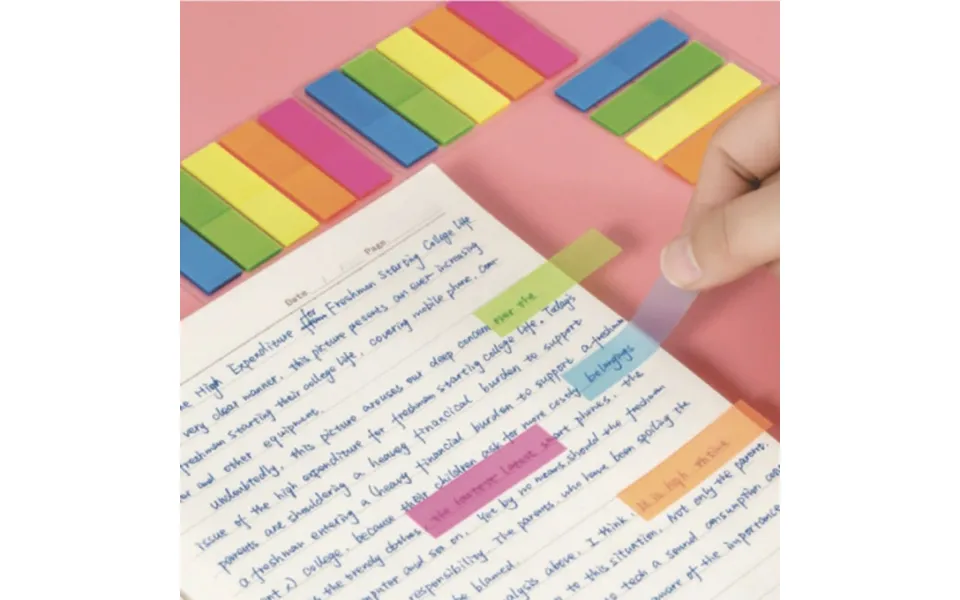 Date / / Page
he High Expenditure for Freshman Starting College Life
very clear manner, this picture presents an ever increasing
freshman starting their college life, covering mobile phone, com
er and other equipment.
Undoubtedly, this picture arouses our deep concern over the
issue of the high expenditure for freshman starting college life. Today's
parents are shouldering a heavy financial burden to support
a freshman entering a (heavy financial burden to support a freshman
college, because their children ask for more costly belongings
the trendy clothes, the fastest latest smart phones, the
mputer and so on. Yet by no means should the freshman
responsibility. The parents, who have been spoiling the
be blamed. It is high time
alysis above, I think,
to this situation. Not only the parents
to teach a sound consumption
aware of the importance